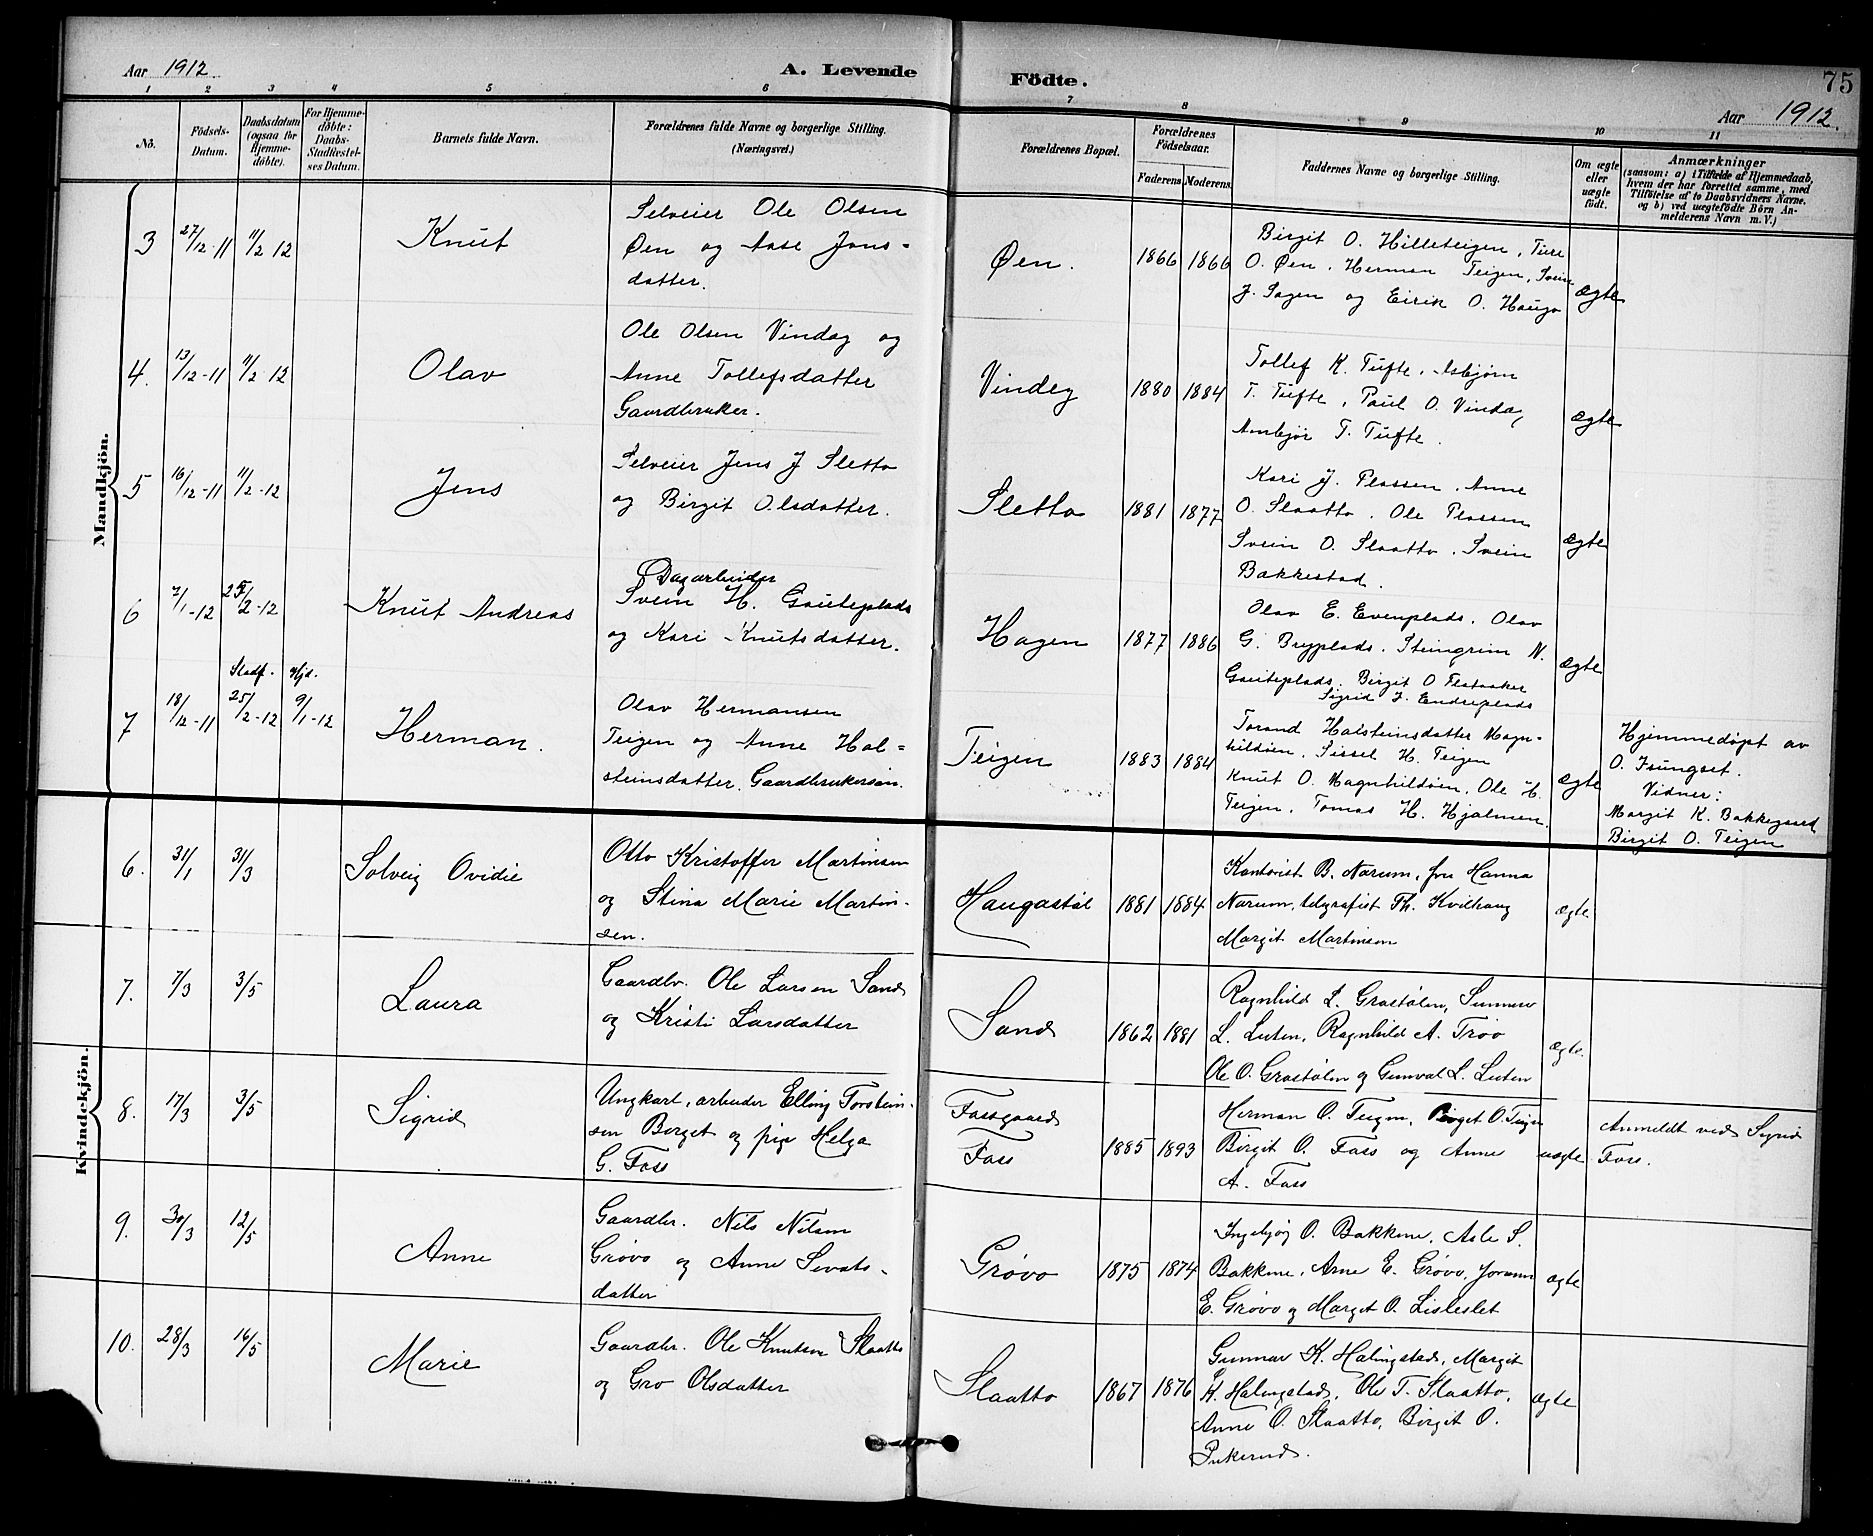 Aar 1912
A. Levende
Födte.
75
Aar 1912.
1 2 3 4 5 6 7 8 9 10 11
No.
Födsels-
Datum.
Daabsdatum
(ogsaa for
Hjemme-
döbte).
For Hjemme-
döbte:
Daabs-
Stadfæstel-
ses Datum.
Barnets fulde Navn.
Forældrenes fulde Navne og borgerlige Stilling.
(Næringsvei.)
Forældrenes Bopæl.
Forældrenes
Födselsaar.
Faderens Moderens
Faddernes Navne og borgerlige Stilling.
Om ægte
eller
uægte
født.
Anmærkninger
(saasom: a) i Tilfælde af Hjemmedaab,
hvem der har forrettet samme, med
Tilföielse af to Daabsvidners Navne.
og b) ved uægtefödte Börn An-
melderens Navn m. V.)
Mandkjön.
3 27/12-11 11/2 12 Knut
Selveier Ole Olsen
Øen og Aase Jons-
datter.
Øen. 1866 1866
Birgit O. Hilleteigen, Ture
O. Øen, Herman Teigen, Svein
J. Sagen og Eirik O. Haugo
ægte
4. 13/12-11 11/2-12 Olav
Ole Olsen Vindeg og
Anne Tollefsdatter
Gaardbruker.
Vindeg 1880 1884
Tollef K. Tufte, Asbjørn
T. Tufte, Paul O. Vindeg,
Annbjør T. Tufte.
ægte
5 16/12-11 11/2-12 Jens
Selveier Jens J Sletto
og Birgit Olsdatter.
Sletto 1881 1877
Kari J. Plassen, Anne
O. Slaatto, Ole Plassen
Svein O. Slaatto, Svein
Bakkestad.
ægte
6 7/1-12 25/2-12 Knut Andreas
Dagarbeider
Svein H. Gouteplads
og Kari Knutsdatter.
Hagen 1877 1886
Olav E. Evenplads, Olav
G. Bryplads, Steingrim N.
Gouteplads, Birgit O
Sigrid J. Endreplads
ægte
Stadf. Hjd.
7 18/12-11 25/2-12 9/1-12 Herman.
Olav Hermansen
Teigen og Anne Hal-
steinsdatter, Gaardbrukersøn.
Teigen 1883 1884
Torand Halsteinsdatter Magn-
hildøen, Sissel H. Teigen
Knut O. Magnhildøen, Ole H.
Teigen, Tomas H. Hjalmen.
ægte
Hjemmedøpt av
O. Isungset.
Vidner:
Margit K. Bakkegaard
Birgit O. Teigen
Kvindekjön.
6. 31/1 31/3 Solveig Ovidie
Otto Kristoffer Martinsen
og Stina Marie Martin-
sen.
Haugastøl 1881 1884
Kontorist B. Narum, fru Hanna
Narum, telegrafist Th. Kvilhaug
Margit Martinsen
ægte
7. 7/3 3/5 Laura
Gaardbr. Ole Larsen Sand
og Kristi Larsdatter
Sand 1862 1881
Ragnhild L. Grøstølen, Sunneva
L. Luten, Ragnhild A. Trøo
Ole O. Grøstølen og Gunval L. Luten
ægte.
8. 17/3 3/5 Sigrid
Ungkarl, arbeider Elling Torstein-
sen Berget og pige Helga
G. Foss
Fossgaard
Foss 1885 1893
Herman O. Teigen, Birgit O. Teigen
Birgit O. Foss og Anne
A. Foss
uægte
Anmeldt ved Sigrid
Foss.
9. 30/3 12/5 Anne
Gaardbr. Nils Nilsen
Grøvo og Anne Sevats-
datter
Grøvo 1875 1874
Ingebjøg O. Bakkene, Asle S.
Bakkene, Arne E. Grøvo, Jorunn
E. Grøvo og Marget O. Lisleslet
ægte
10. 28/3 16/5 Marie
Gaardbr. Ole Knutsen Slaatto
og Gro Olsdatter
Slaatto 1867 1876
Gunnar K. Halingstad, Margit
K. Halingstad, Ole T. Slaatto,
Anne O. Slaatto, Birgit O.
Pukerud.
ægte